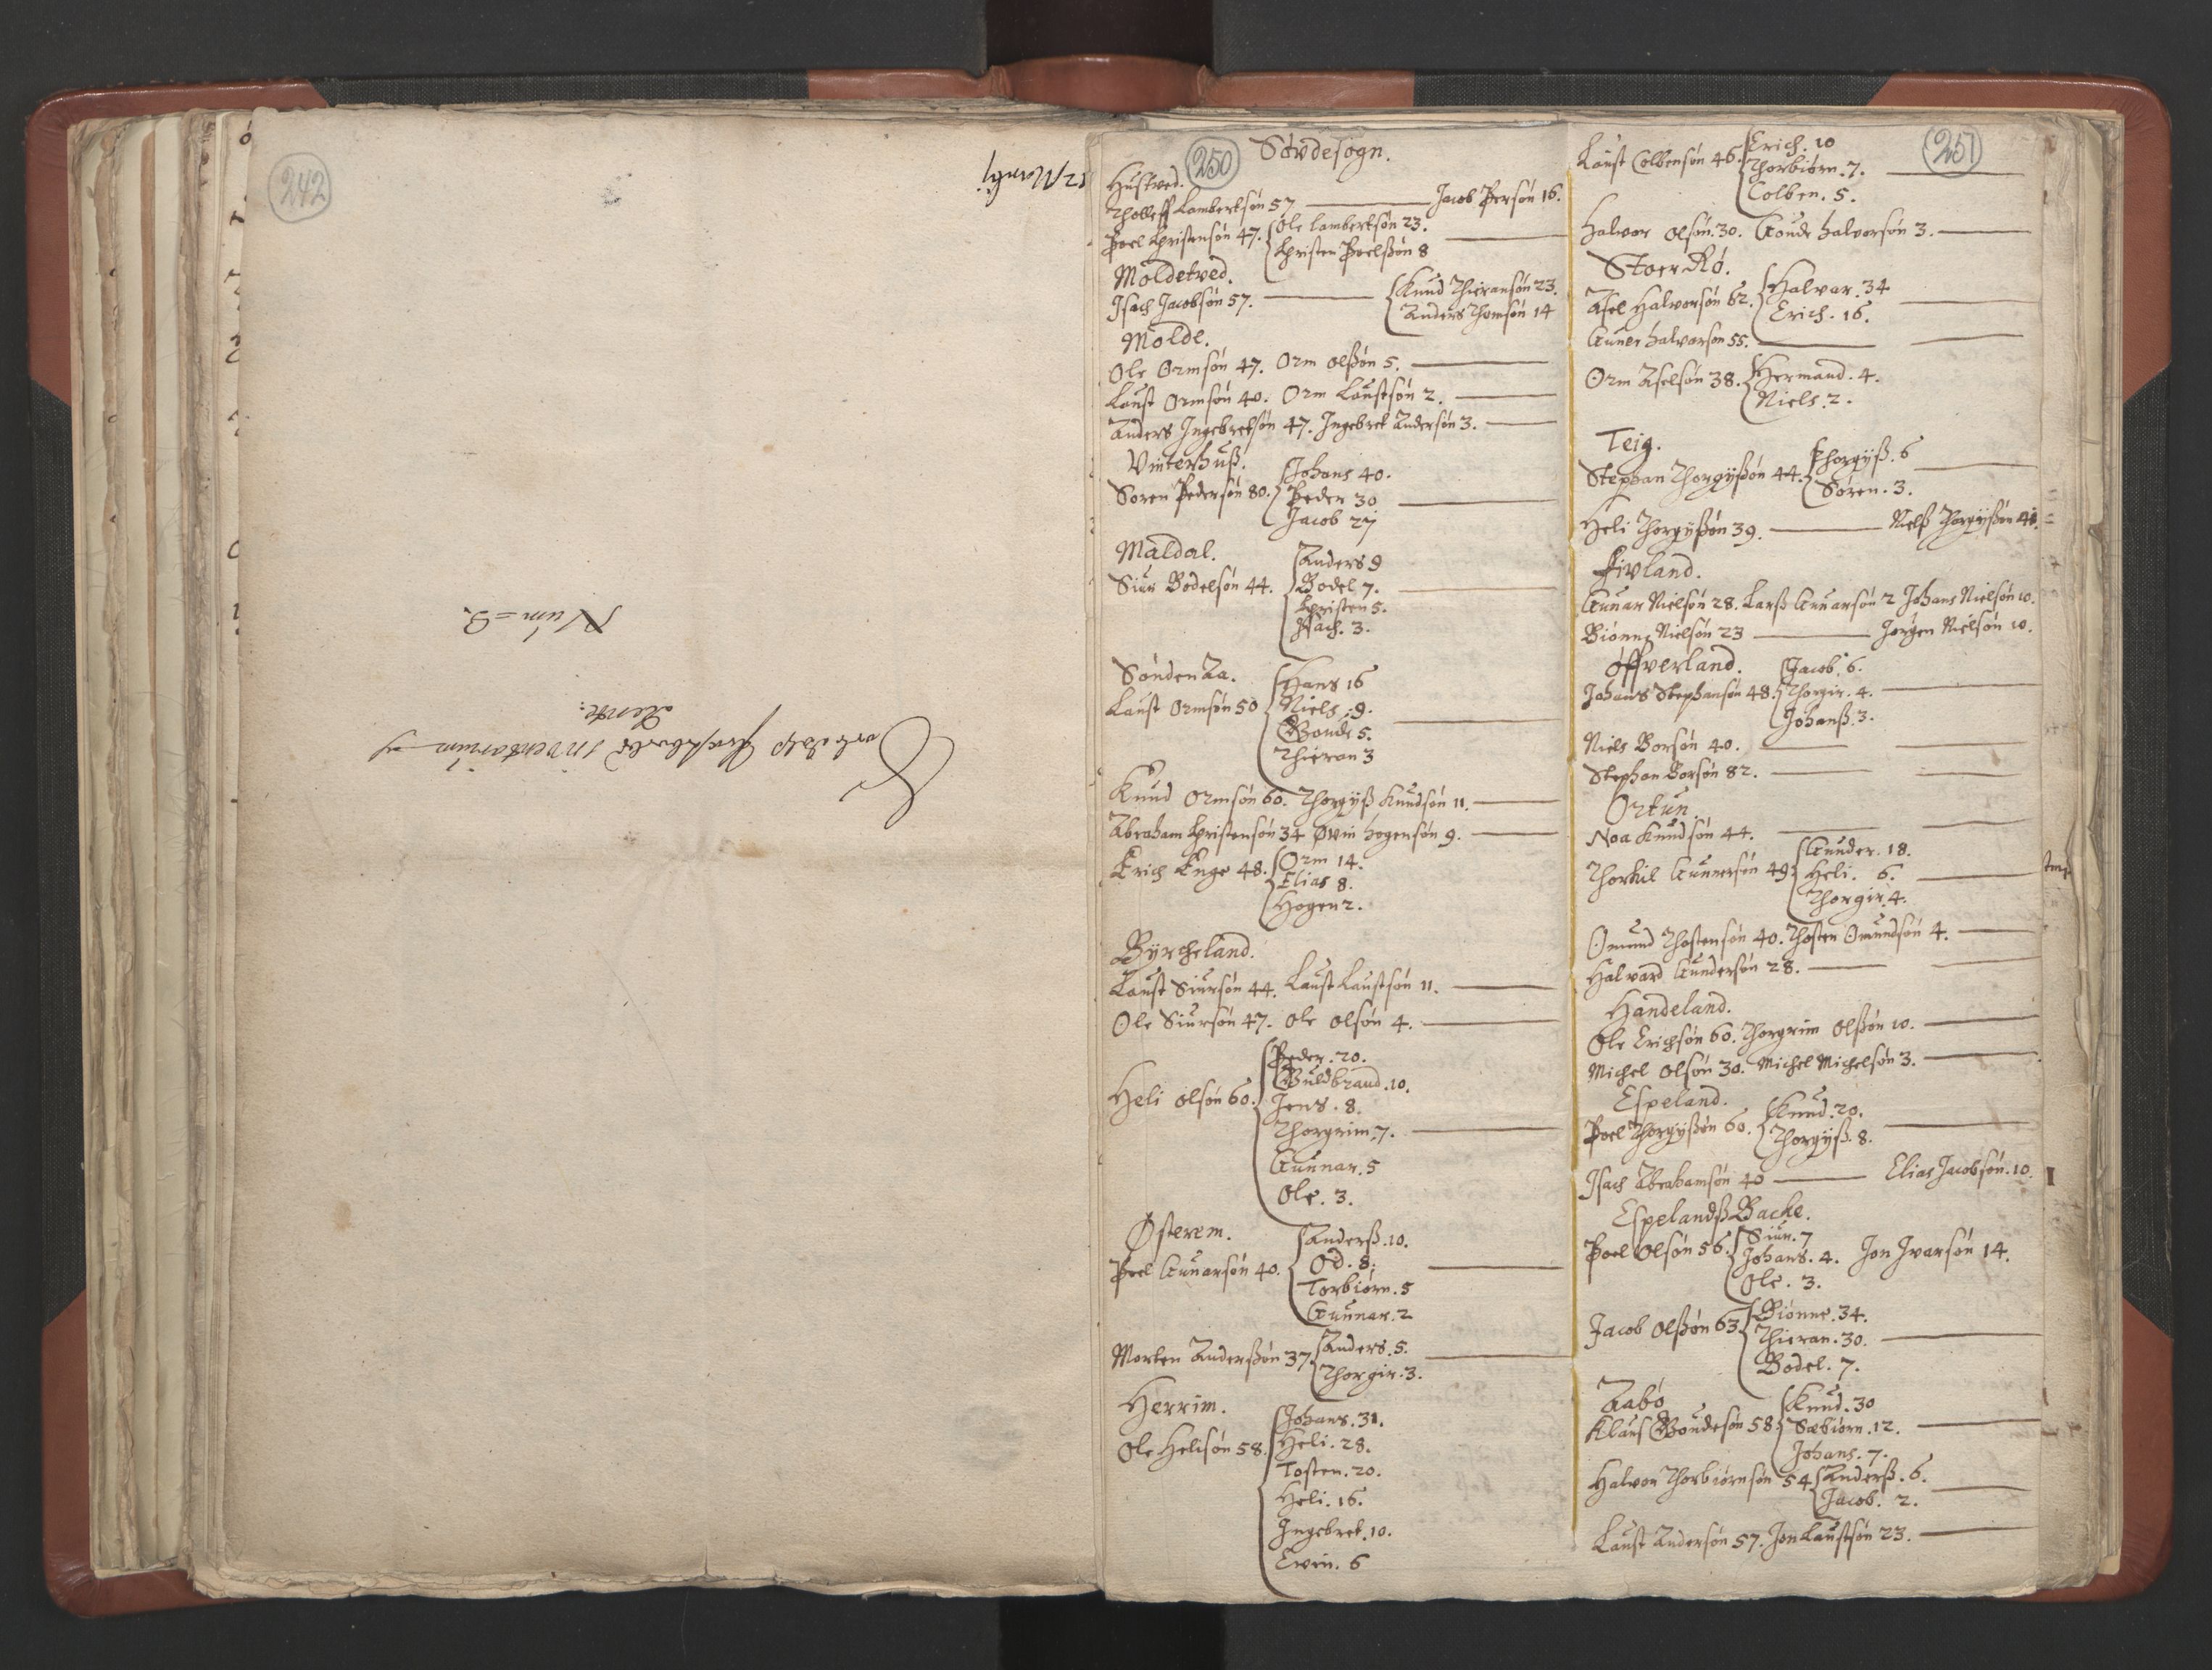 242
Num = 3.
12 Martij
250
Søvdesogn.
Hustved.
Tholleff Lambertsøn 57 Jacob Persøn 16.
Poel Christensøn 47. Ole Lambertsøn 23.
Christen Poelssøn 8
Moldetved.
Isach Jacobsøn 57. Knud Thieransøn 23.
Anders Thomsøn 14
Molde.
Ole Ormsøn 47. Orm Olssøn 5.
Laust Ormsøn 40. Orm Laustsøn 2.
Anders Ingebretsøn 47. Ingebret Andersøn 3.
Vinterhuss.
Soren Pedersøn 80. Johans 40.
Peder 30
Jacob 27
Maldal.
Siur Bodelsøn 44. Anders 9
Bodel 7.
Christen 5.
Isach. 3.
Sønden Aa.
Laust Ormsøn 50 Hans 16
Niels. 9.
Gonde 5.
Thieran 3
Knud Ormsøn 60. Thorgiss Knudsøn 11.
Abraham Christensøn 34 Øvin Hogensøn 9.
Erich Enge 48. Orm 14.
Elias 8.
Hogen 2.
Byrcheland.
Laust Siursøn 44. Laust Laustsøn 11.
Ole Siursøn 47. Ole Olsøn 4.
Heli Olsøn 60. Peder. 20.
Guldbrand. 10.
Jens. 8.
Thorgrim. 7.
Gunnar. 5
Ole. 3.
Østerem.
Poel Gunarsøn 40. Anderss. 10.
Od. 8.
Torbiørn. 5
Gunnar. 2
Morten Anderssøn 37 Anders. 5.
Thorgir. 3.
Herrim.
Ole Helisøn 58. Johans. 31.
Heli. 28.
Tosten. 20.
Heli. 16.
Ingebret. 10.
Ewin. 6
251
Laust Colbensøn 46. Erich. 10
Thorbiørn. 7.
Colben. 5.
Halvor Olsøn. 30. Gonde Halvorsøn 3.
Stoer Rø.
Asel Halvorsøn 62. Halvar. 34
Erich. 16.
Guner Halvorsøn 55.
Orm Aselsøn 38. Hermand. 4.
Niels. 2.
Teig.
Stephan Thorgyssøn 44. Thorgyss. 6
Søren. 3.
Heli Thorgyssøn 39. Nielss Thorgyssøn
Fivland.
Gunar Nielsøn 28. Larss Gunarsøn 2 Johans Nielsøn 10.
Biønne Nielsøn 23 Jørgen Nielsøn 10.
Øffverland.
Johans Stephansøn 48. Jacob. 6.
Thorgir. 4.
Johanss. 3.
Niels Borsøn 40.
Stephan Borsøn 82.
Ortun
Noa Knudsøn 44.
Thorkil Gunnersøn 49 Gunder. 18.
Heli. 6.
Thorgir. 4.
Omund Thostensøn 40. Thosten Omundsøn 4.
Halvard Gundersøn 28.
Handeland.
Ole Erichsøn 60. Thorgrim Olssøn 10.
Michel Olsøn 30. Michel Michelsøn 3.
Espeland.
Poel Thorgyssøn 60. Knud. 20.
Thorgyss. 8.
Isach Abrahamsøn 40 Elias Jacobsøn. 10.
Espelandss Backe.
Poel Olsøn 56. Siur. 7
Johans. 4. Jon Ivarsøn 14.
Ole. 3.
Jacob Olssøn 63 Biønne. 34.
Thieran. 30.
Bodel. 7.
Aabø
Klaus Gondesøn 58. Knud. 30
Sæbiørn. 12.
Johans. 7.
Halvor Thorbiørnsøn 54 Anderss. 6.
Jacob. 2.
Laust Andersøn 57. Jon Laustsøn 23.